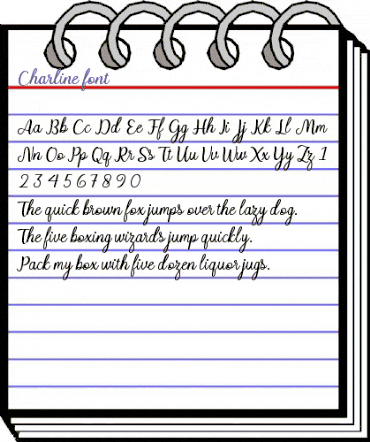 Charline font
Aa Bb Cc Dd Ee Ff Gg Hh Ii Jj Kk Ll Mm
Nn Oo Pp Qq Rr Ss Tt Uu Vv Ww Xx Yy Zz 1
2 3 4 5 6 7 8 9 0
The quick brown fox jumps over the lazy dog.
The five boxing wizards jump quickly.
Pack my box with five dozen liquor jugs.